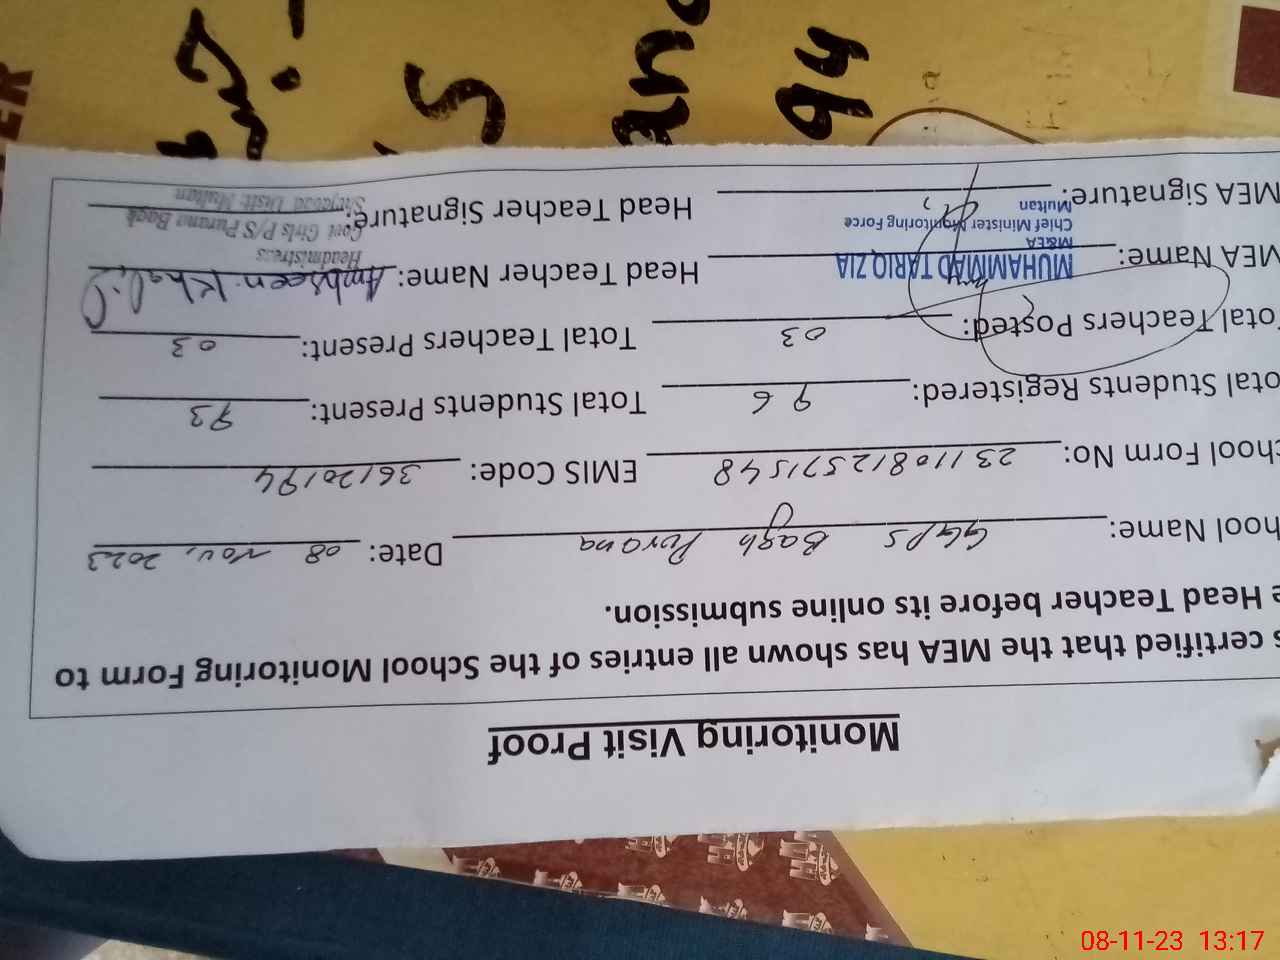 Monitoring Visit Proof
s certified that the MEA has shown all entries of the School Monitoring Form to
e Head Teacher before its online submission.
hool Name: GGPS Bagh Purana Date: 08 Nov, 2023
chool Form No: 23110812571548 EMIS Code: 36120194
otal Students Registered: 96 Total Students Present: 93
Total Teachers Posted: 03 Total Teachers Present: 03
MEA Name: MUHAMMAD TARIQ ZIA Head Teacher Name: Ambseen Khalil
M&EA Headmistress
Chief Minister Monitoring Force Govt Girls P/S Purana Bagh
Multan Shujabad Distt: Multan
MEA Signature: Head Teacher Signature:
94
an
S
ER
08-11-23 13:17